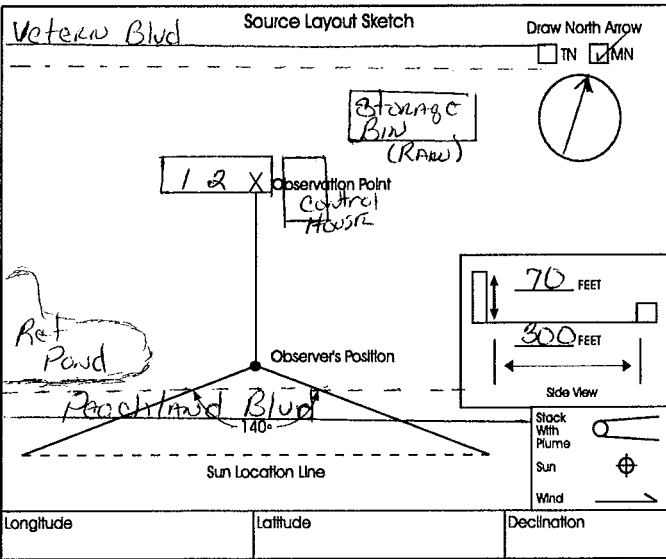 Source Layout Sketch
Vetern Blvd
Draw North Arrow
TN MN
Storage
Bin
(Raw)
1 2 X Observation Point
Control
House
70 FEET
300 FEET
Side View
Ret
Pond
Observer's Position
Peachland Blvd
140°
Sun Location Line
Stack
With
Plume
Sun
Wind
Longitude
Latitude
Declination